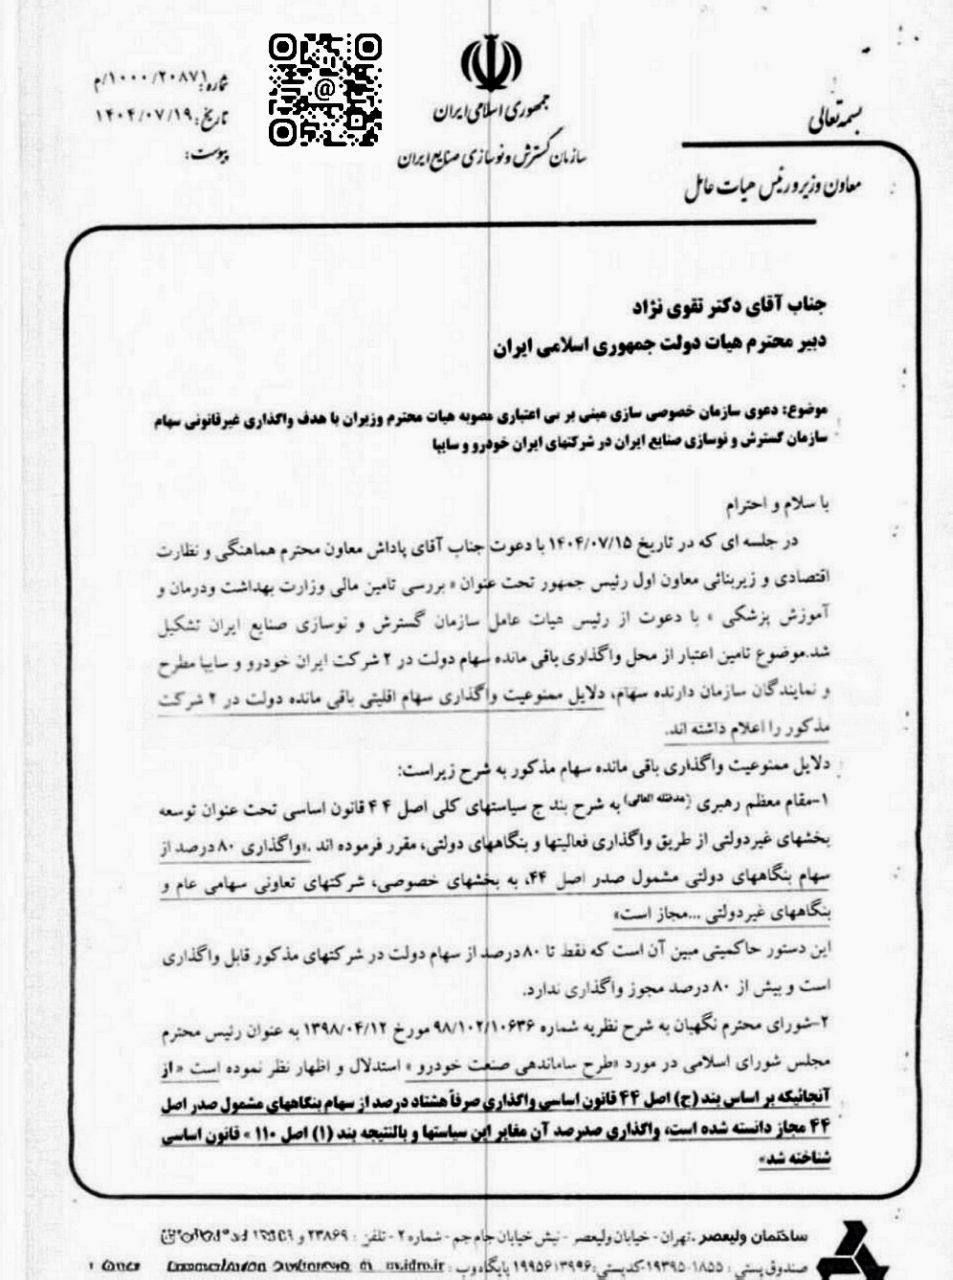 بسمه تعالی
جمهوری اسلامی ایران
سازمان گسترش و نوسازی صنایع ایران
معاون وزیر و رئیس هیات عامل
شماره: ۱۰۰۰/۲۰۸۷۱/م
تاریخ: ۱۴۰۴/۰۷/۱۹
پیوست:
جناب آقای دکتر تقوی نژاد
دبیر محترم هیات دولت جمهوری اسلامی ایران
موضوع: دعوی سازمان خصوصی سازی مبنی بر بی اعتباری مصوبه هیات محترم وزیران با هدف واگذاری غیرقانونی سهام
سازمان گسترش و نوسازی صنایع ایران در شرکتهای ایران خودرو و سایپا
با سلام و احترام
در جلسه ای که در تاریخ ۱۴۰۴/۰۷/۱۵ با دعوت جناب آقای پاداش معاون محترم هماهنگی و نظارت
اقتصادی و زیربنائی معاون اول رئیس جمهور تحت عنوان « بررسی تامین مالی وزارت بهداشت ودرمان و
آموزش پزشکی » با دعوت از رئیس هیات عامل سازمان گسترش و نوسازی صنایع ایران تشکیل
شد.موضوع تامین اعتبار از محل واگذاری باقی مانده سهام دولت در ۲ شرکت ایران خودرو و سایپا مطرح
و نمایندگان سازمان دارنده سهام، دلایل ممنوعیت واگذاری سهام اقلیتی باقی مانده دولت در ۲ شرکت
مذکور را اعلام داشته اند.
دلایل ممنوعیت واگذاری باقی مانده سهام مذکور به شرح زیراست:
۱-مقام معظم رهبری (مدظله العالی) به شرح بند ج سیاستهای کلی اصل ۴۴ قانون اساسی تحت عنوان توسعه
بخشهای غیردولتی از طریق واگذاری فعالیتها و بنگاههای دولتی، مقرر فرموده اند .«واگذاری ۸۰ درصد از
سهام بنگاههای دولتی مشمول صدر اصل ۴۴، به بخشهای خصوصی، شرکتهای تعاونی سهامی عام و
بنگاههای غیردولتی ...مجاز است»
این دستور حاکمیتی مبین آن است که نقط تا ۸۰ درصد از سهام دولت در شرکتهای مذکور قابل واگذاری
است و بیش از ۸۰ درصد مجوز واگذاری ندارد.
۲-شورای محترم نگهبان به شرح نظریه شماره ۹۸/۱۰۲/۱۰۶۳۶ مورخ ۱۳۹۸/۰۴/۱۲ به عنوان رئیس محترم
مجلس شورای اسلامی در مورد «طرح ساماندهی صنعت خودرو » استدلال و اظهار نظر نموده است « از
آنجائیکه بر اساس بند (ج) اصل ۴۴ قانون اساسی واگذاری صرفاً هشتاد درصد از سهام بنگاههای مشمول صدر اصل
۴۴ مجاز دانسته شده است، واگذاری صدرصد آن مغایر این سیاستها و بالنتیجه بند (۱) اصل ۱۱۰ » قانون اساسی
شناخته شد»
ساختمان ولیعصر .تهران - خیابان ولیعصر - نبش خیابان جام جم - شماره ۲ - تلفن : ۲۳۸۶۹ و
صندوق پستی : ۱۸۵۵-۱۹۳۹۵-کدپستی:۱۹۹۵۶۱۳۹۹۶ پایگاه وب :